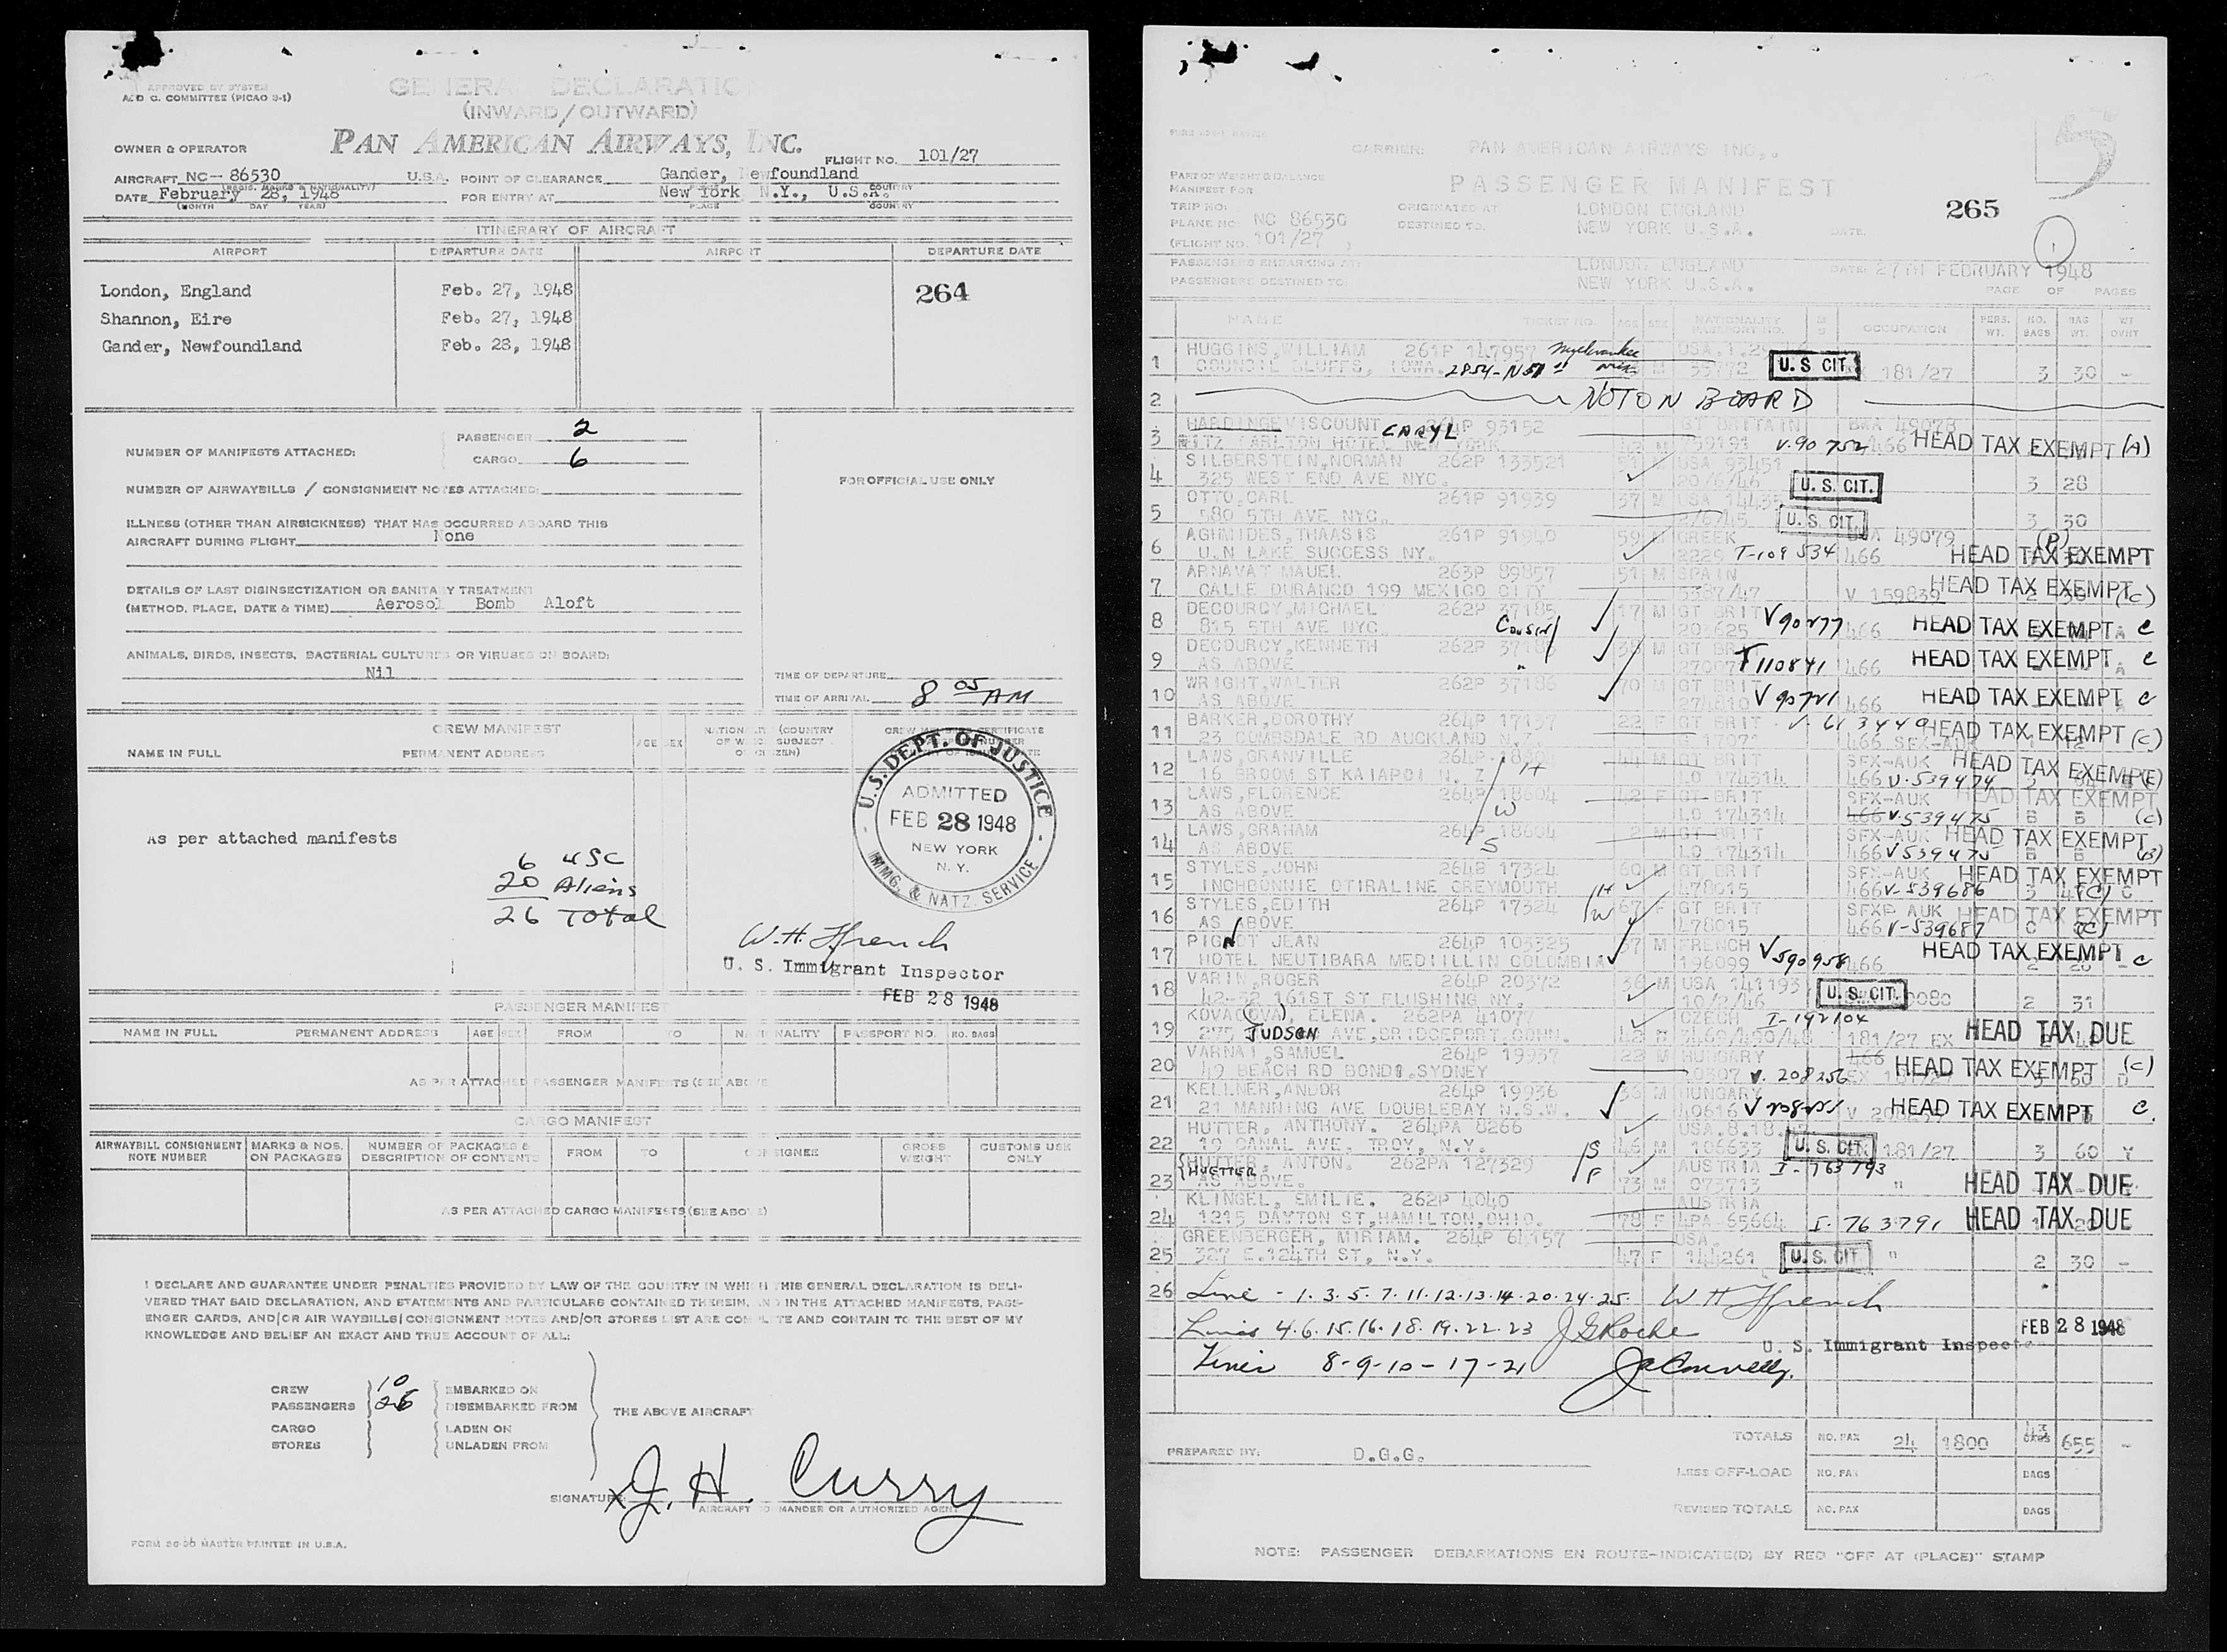 APPROVED BY SYSTEM
AND G. COMMITTEE (PICAO 3-1)
GENERAL DECLARATION
(INWARD/OUTWARD)
PAN AMERICAN AIRWAYS, INC.
OWNER & OPERATOR
FLIGHT NO. 101/27
AIRCRAFT NC-- 86530 U.S.A. POINT OF CLEARANCE Gander, Newfoundland
DATE February 28, 1948 FOR ENTRY AT New York N.Y., U.S.A.
(MONTH DAY YEAR) PLACE COUNTRY
ITINERARY OF AIRCRAFT
AIRPORT DEPARTURE DATE AIRPORT DEPARTURE DATE
London, England Feb. 27, 1948 264
Shannon, Eire Feb. 27, 1948
Gander, Newfoundland Feb. 28, 1948
NUMBER OF MANIFESTS ATTACHED: PASSENGER 2
CARGO 6
FOR OFFICIAL USE ONLY
NUMBER OF AIRWAYBILLS / CONSIGNMENT NOTES ATTACHED:
ILLNESS (OTHER THAN AIRSICKNESS) THAT HAS OCCURRED ABOARD THIS
AIRCRAFT DURING FLIGHT None
DETAILS OF LAST DISINSECTIZATION OR SANITARY TREATMENT
(METHOD, PLACE, DATE & TIME) Aerosol Bomb Aloft
ANIMALS, BIRDS, INSECTS, BACTERIAL CULTURES OR VIRUSES ON BOARD:
Nil
TIME OF DEPARTURE
TIME OF ARRIVAL 8 05 AM
CREW MANIFEST
NAME IN FULL PERMANENT ADDRESS AGE SEX
As per attached manifests
6 USC
20 Aliens
26 Total
U.S. DEPT. OF JUSTICE
ADMITTED
FEB 28 1948
NEW YORK
N. Y.
IMMG. & NATZ. SERVICE
W.H. Ffrench
U. S. Immigrant Inspector
FEB 28 1948
PASSENGER MANIFEST
NAME IN FULL PERMANENT ADDRESS AGE SEX FROM TO NATIONALITY PASSPORT NO. NO. BAGS
AS PER ATTACHED PASSENGER MANIFESTS (SEE ABOVE
CARGO MANIFEST
AIRWAYBILL CONSIGNMENT NOTE NUMBER MARKS & NOS. ON PACKAGES NUMBER OF PACKAGES & DESCRIPTION OF CONTENTS FROM TO CONSIGNEE GROSS WEIGHT CUSTOMS USE ONLY
AS PER ATTACHED CARGO MANIFESTS (SEE ABOVE)
I DECLARE AND GUARANTEE UNDER PENALTIES PROVIDED BY LAW OF THE COUNTRY IN WHICH THIS GENERAL DECLARATION IS DELI-
VERED THAT SAID DECLARATION, AND STATEMENTS AND PARTICULARS CONTAINED THEREIN, AND IN THE ATTACHED MANIFESTS, PASS-
ENGER CARDS, AND/OR AIR WAYBILLS/CONSIGNMENT NOTES AND/OR STORES LIST ARE COMPLETE AND CONTAIN TO THE BEST OF MY
KNOWLEDGE AND BELIEF AN EXACT AND TRUE ACCOUNT OF ALL:
CREW 10 EMBARKED ON
PASSENGERS 26 DISEMBARKED FROM THE ABOVE AIRCRAFT
CARGO LADEN ON
STORES UNLADEN FROM
SIGNATURE J. H. Curry
AIRCRAFT COMMANDER OR AUTHORIZED AGENT
MASTER PRINTED IN U.S.A.
CARRIER: PAN AMERICAN AIRWAYS INC.,
PART OF WEIGHT & BALANCE
MANIFEST FOR PASSENGER MANIFEST
TRIP NO: ORIGINATED AT: LONDON ENGLAND 265
PLANE NO: NC 86530 DESTINED TO: NEW YORK U.S.A. DATE:
(FLIGHT NO. 101/27 ) 1
PASSENGERS EMBARKING AT: LONDON ENGLAND DATE: 27TH FEBRUARY 1948
PASSENGERS DESTINED TO: NEW YORK U.S.A. PAGE OF PAGES
NAME TICKET NO. AGE SEX NATIONALITY PASSPORT NO. OCCUPATION PERS. WT. NO. BAGS BAG WT. WT OVHT
1 HUGGINS, WILLIAM 261P 147957
COUNCIL BLUFFS, IOWA. U. S CIT. 181/27 3 30 -
2 NOT ON BOARD
3 HARDINGE VISCOUNT CARYL 264P 93152 GT BRITAIN
RITZ CARLTON HOTEL NEW YORK V.90752 466 HEAD TAX EXEMPT (A)
4 SILBERSTEIN, NORMAN 262P 133521 USA 93451
325 WEST END AVE NYC. 20/6/46 U. S. CIT. 3 28
5 OTTO, CARL 261P 91939 37 M USA
580 5TH AVE NYC. U. S. CIT. 3 30
6 AGHNIDES, THAASIS 261P 91940 59 M GREEK 49079
U.N LAKE SUCCESS NY. 2229 T-109534 466 HEAD TAX EXEMPT
7 ARNAVAT MAUEL 263P 89857 51 M SPAIN
CALLE DURANGO 199 MEXICO CITY 5387/47 V 159839 HEAD TAX EXEMPT (C)
8 DECOURCY, MICHAEL 262P 37185 17 M GT BRIT
815 5TH AVE NYC Cousin 466 HEAD TAX EXEMPT C
9 DECOURCY, KENNETH 262P 38 M GT BRIT
AS ABOVE T110841 466 HEAD TAX EXEMPT C
10 WRIGHT, WALTER 262P 37186 70 M GT BRIT
AS ABOVE 466 HEAD TAX EXEMPT C
11 BARKER, DOROTHY 264P 17137 22 F GT BRIT
23 COMBSDALE RD AUCKLAND N.Z. 466 SFX-AUK HEAD TAX EXEMPT (C)
12 LAWS, GRANVILLE 264P 44 M GT BRIT SFX-AUK
16 GROOM ST KAIAPOI N. Z H LO 174314 466 V.539474 HEAD TAX EXEMPT
13 LAWS, FLORENCE 264P 18604 42 F GT BRIT SFX-AUK HEAD TAX EXEMPT
AS ABOVE W LO 174314 466 V.539475 (C)
14 LAWS, GRAHAM 264P 18604 2 M GT BRIT SFX-AUK HEAD TAX EXEMPT
AS ABOVE S LO 174314 466 V539475
15 STYLES, JOHN 264P 17324 60 M GT BRIT SFX-AUK HEAD TAX EXEMPT
INCHBONNIE OTIRALINE GREYMOUTH H 478015 466 V-539686 (C)
16 STYLES, EDITH 264P 17324 67 F GT BRIT AUK HEAD TAX EXEMPT
AS ABOVE W 478015 466 V-539687 (C)
17 PIGNOT JEAN 264P 103325 37 M FRENCH
HOTEL NEUTIBARA MEDIILLIN COLOMBIA 196099 V590958 466 HEAD TAX EXEMPT C
18 VARIN, ROGER 264P 20372 M USA 141193
42-32 161ST ST FLUSHING NY. 10/2/46 U. S. CIT. 2 31
19 KOVAC(OVA), ELENA. 262PA 41077 CZECH I-192104
275 JUDSON AVE, BRIDGEPORT, CONN. 181/27 EX HEAD TAX DUE
20 VARNAI, SAMUEL 264P 19937 22 M HUNGARY 466
49 BEACH RD BONDI, SYDNEY V. 208256 HEAD TAX EXEMPT (C)
21 KELLNER, ANDOR 264P 19936 36 M HUNGARY
21 MANNING AVE DOUBLEBAY N.S.W. 40616 HEAD TAX EXEMPT C.
22 HUTTER, ANTHONY. 264PA 8266 USA
19 CANAL AVE. TROY, N.Y. S 46 M 106633 U. S. CIT. 181/27 3 60 Y
23 HUTTER, ANTON. 262PA 127329 AUSTRIA I-763793
(HUETTER AS ABOVE. F 73 M 073713 " HEAD TAX DUE
24 KLINGEL, EMILIE. 262P 4040 AUSTRIA
1215 DAYTON ST, HAMILTON, OHIO. 78 F 4PA-65664 763791 HEAD TAX DUE
25 GREENBERGER, MIRIAM. 264P 64157 USA.
327 E.124TH ST, N.Y. 47 F 144261 U. S. CIT " 2 30 -
26 Line - 1.3.5.7.11.12.13.14.20.24.25. W H Ffrench
Lines 4.6.15.16.18.19.22.23 J G Roche FEB 28 1948
U. S. Immigrant Inspecto
Lines 8-9-10-17-21 J Connelly.
TOTALS NO. PAX 24 BAGS 655 -
PREPARED BY: D.G.G.
LESS OFF-LOAD NO. PAX BAGS
REVISED TOTALS NO. PAX BAGS
NOTE: PASSENGER DEBARKATIONS EN ROUTE-INDICATE(D) BY RED "OFF AT (PLACE)" STAMP